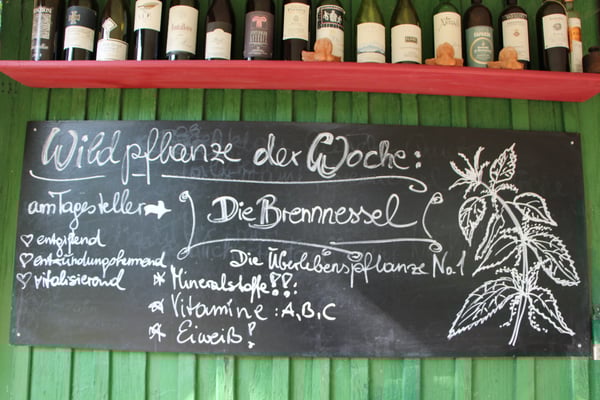 Wildpflanze der Woche:
am Tagesteller → Die Brennnessel
♡ entgiftend
♡ entzündungshemmend
♡ vitalisierend
Die Überlebenspflanze No. 1
* Mineralstoffe!!:
* Vitamine : A, B, C
* Eiweiß!